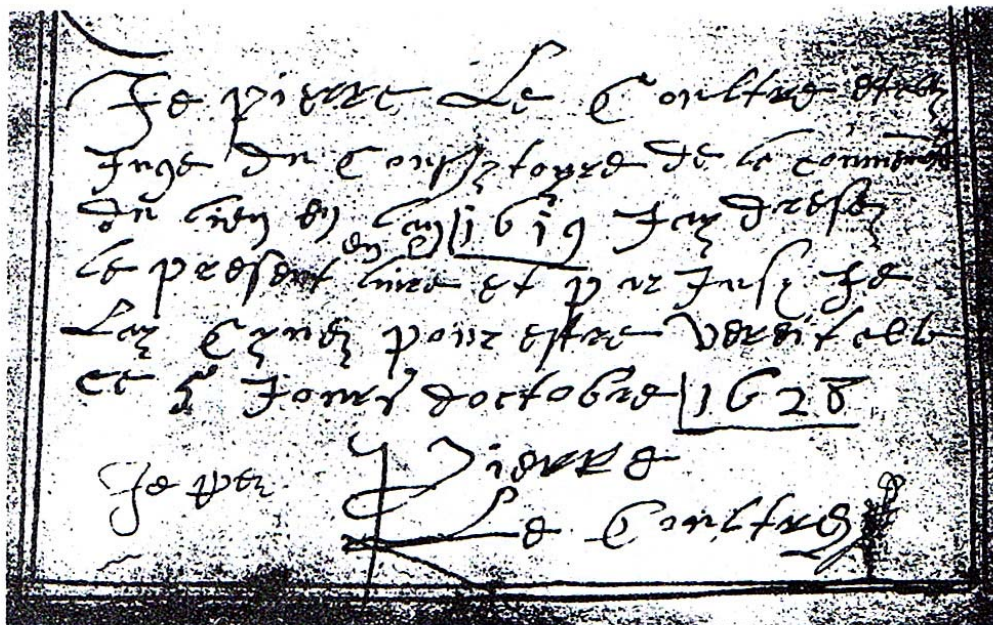 Je pierre Le Coultre
Juge du Consistoyre de le
du lieu en lan 1619 Jay dresez
le present livre et par Jusy Je
Lay Cynez pour estre Vereitable
ce 5 Jours doctobre 1628
Je Pierre
Le Coultre